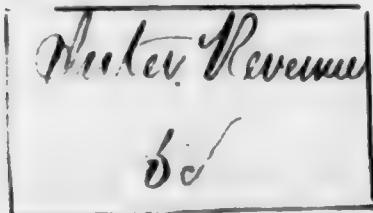 Inter. Revenue